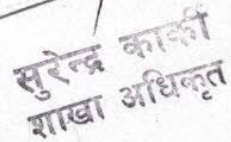 सुरेन्द्र कार्की
शाखा अधिकृत